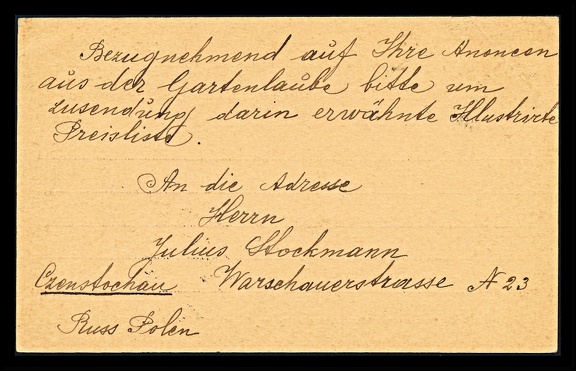 Bezugnehmend auf Ihre Anoncen
aus der Gartenlaube bitte um
zusendung darin erwähnte Illustrirte
Preisliste.
An die Adresse
Herrn
Julius Stockmann
Czenstochau Warschauerstrasse N 23
Russ Polen